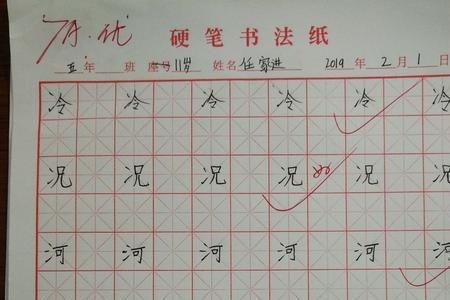 优
硬笔书法纸
五年 班 座号11岁 姓名任家进 2019年2月1日
冷 冷 冷 冷 冷 冷
况 况 况 况 况 况
河 河 河 河 河 河